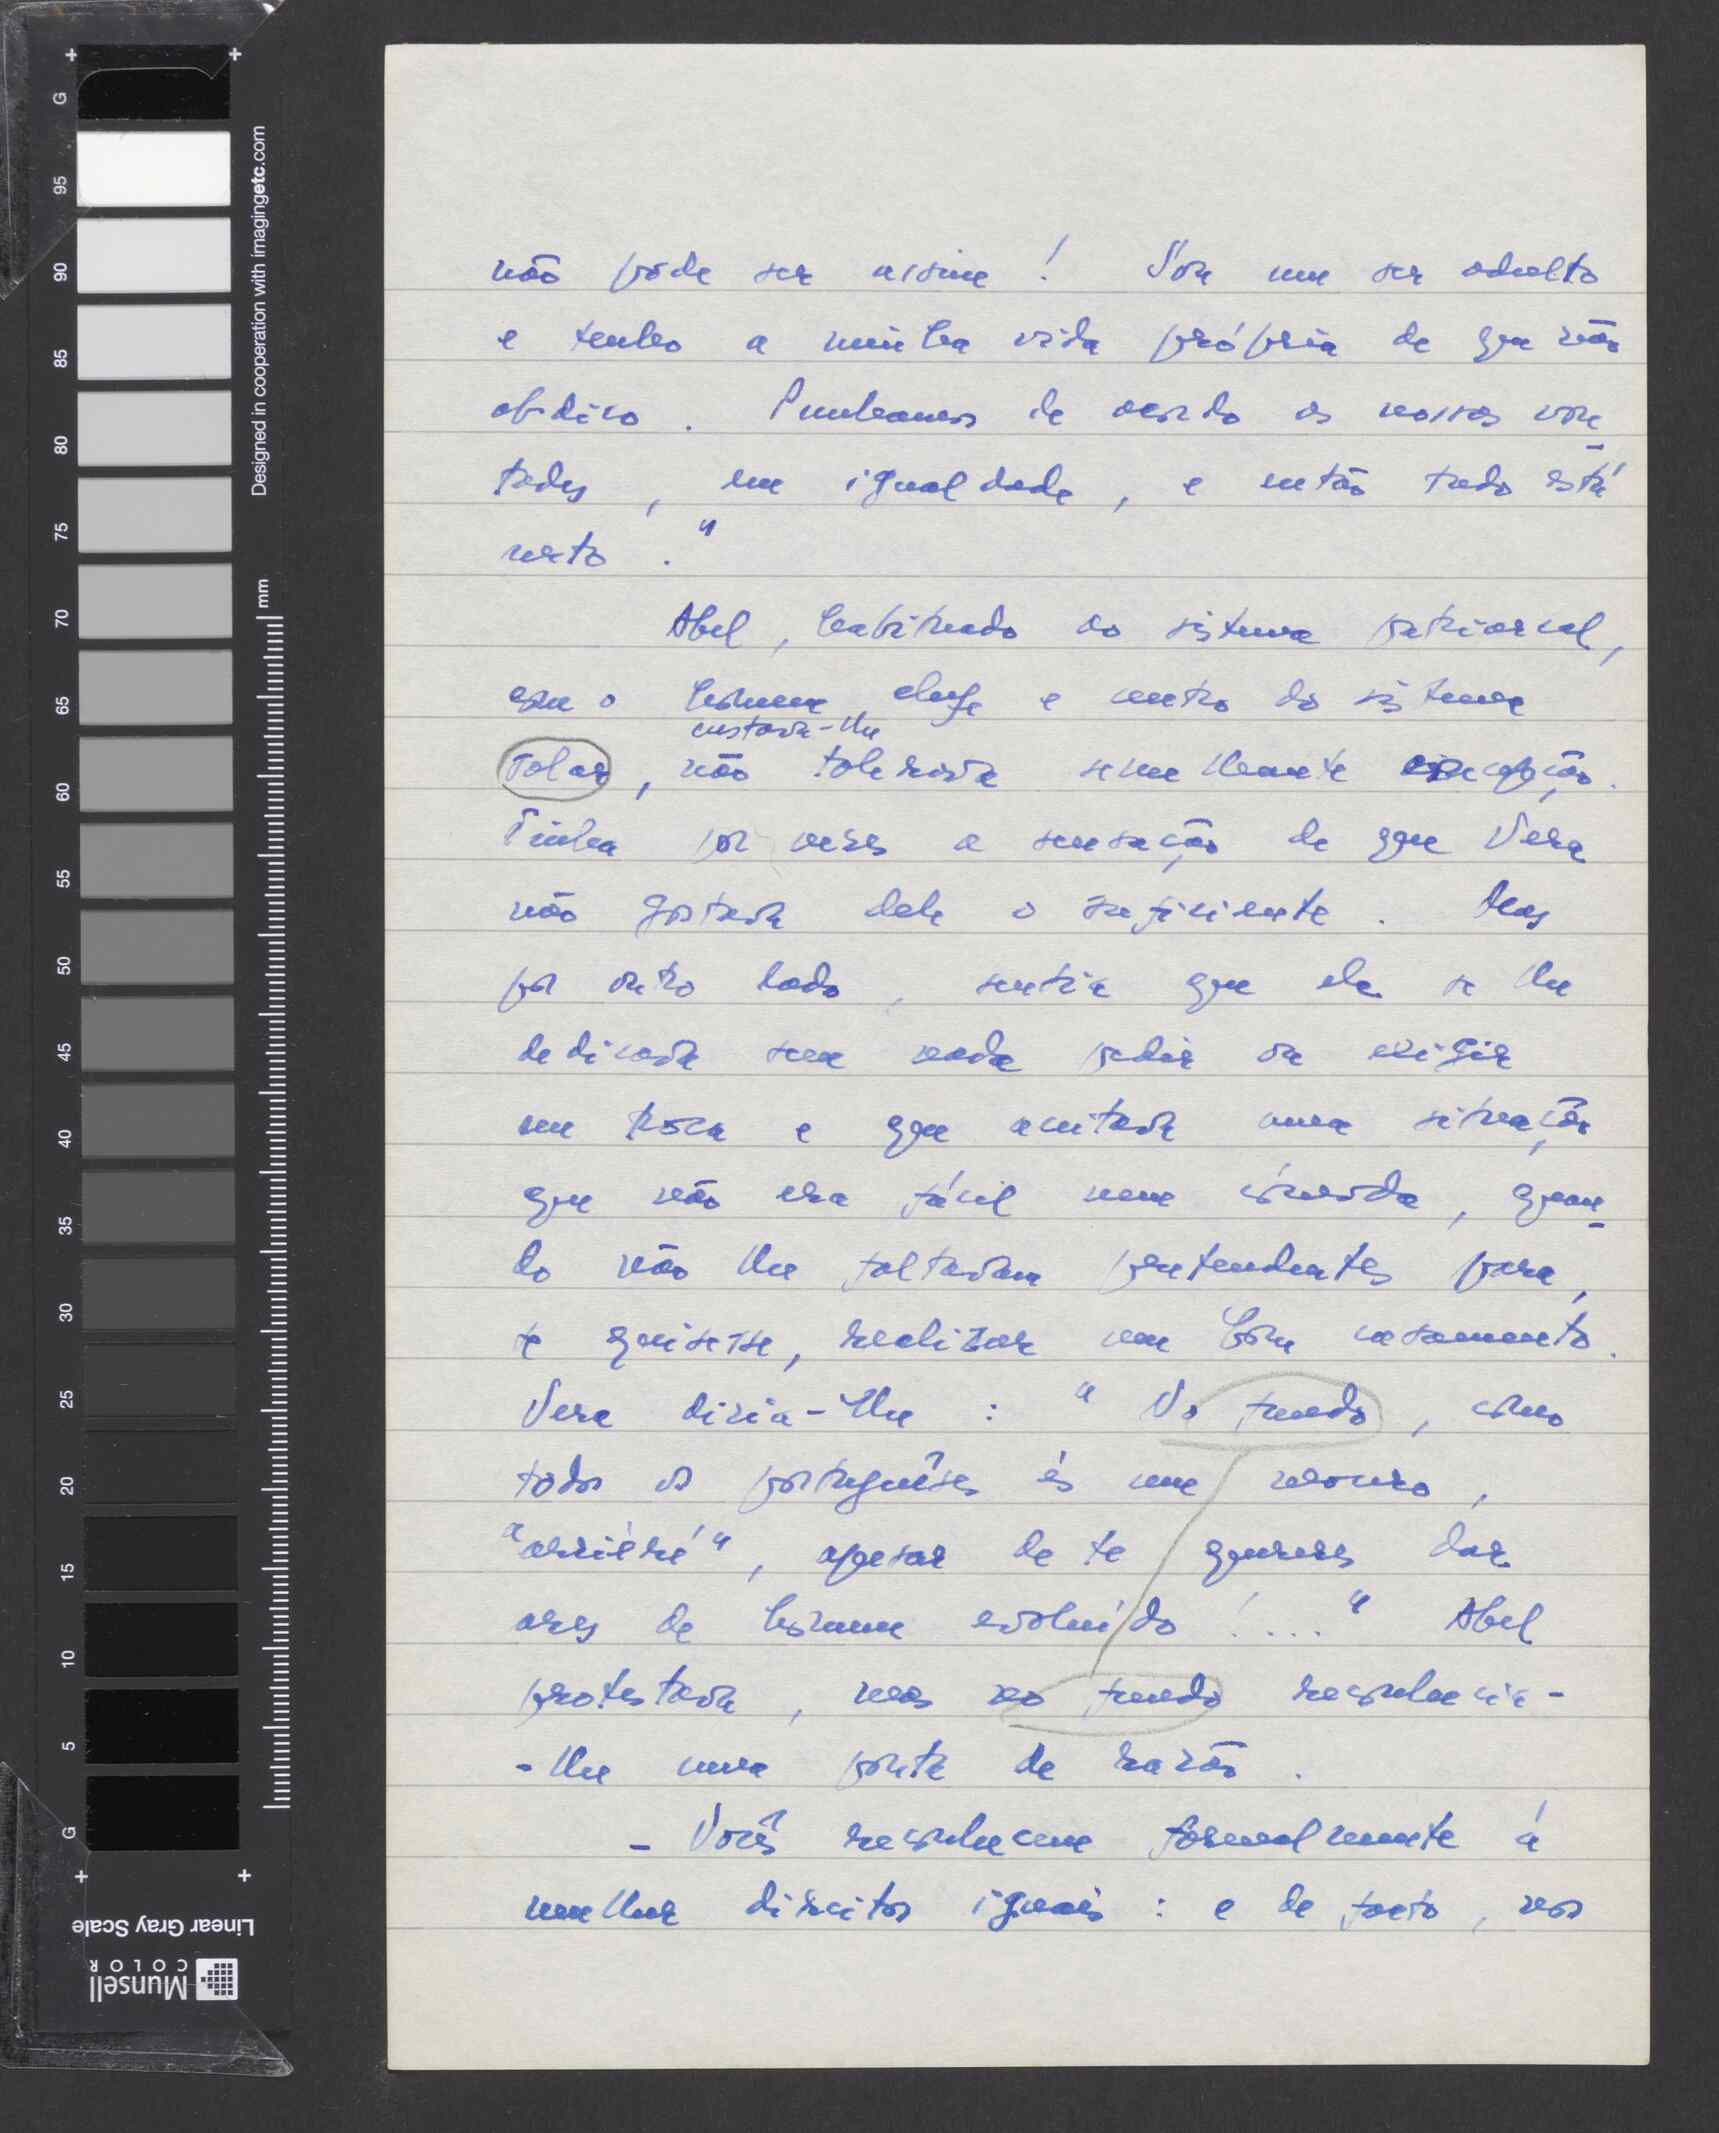 não pode ser assim ! Sou um ser adulto
e tenho a minha vida própria de que não
abdico . Ponhamos de acordo as nossas von-
tades , em igualdade , e então tudo está
certo . "
Abel , habituado ao sistema patriarcal ,
com o homem chefe e centro do sistema
custava-lhe
solar , não tolerava semelhante concepção .
Tinha por vezes a sensação de que Vera
não gostava dele o suficiente . Mas
por outro lado , sentia que ela se lhe
dedicava sem nada pedir ou exigir
em troca e que aceitava uma situação
que não era fácil nem cómoda , quan-
do não lhe faltavam pretendentes para ,
se quisesse , realizar um bom casamento .
Vera dizia-lhe : " No fundo , como
todos os portuguêses és um mouro ,
"arriéré" , apesar de te quereres dar
ares de homem evoluído ! .... " Abel
protestava , mas no fundo reconhecia-
-lhe uma ponta de razão .
- Vocês reconhecem formalmente à
mulher direitos iguais : e de facto , nos
G 95 90 85 80 75 70 65 60 55 50 45 40 35 30 25 20 15 10 5 G
Designed in cooperation with imagingetc.com
mm
Linear Gray Scale
Munsell
COLOR